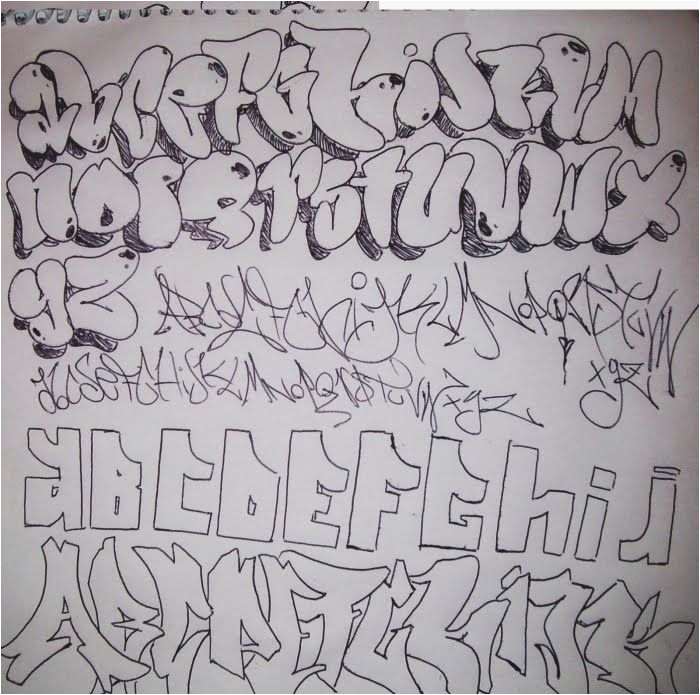 abceFGhiJKLM
nopQrstUVWX
YZ ABCDEFGHIJKLMNOPQRSTUVW
xyz
ABCDEFGHiJKLMNOPQRSTUVWXYZ
aBCDEFGhij
ABCDEFGHIJK